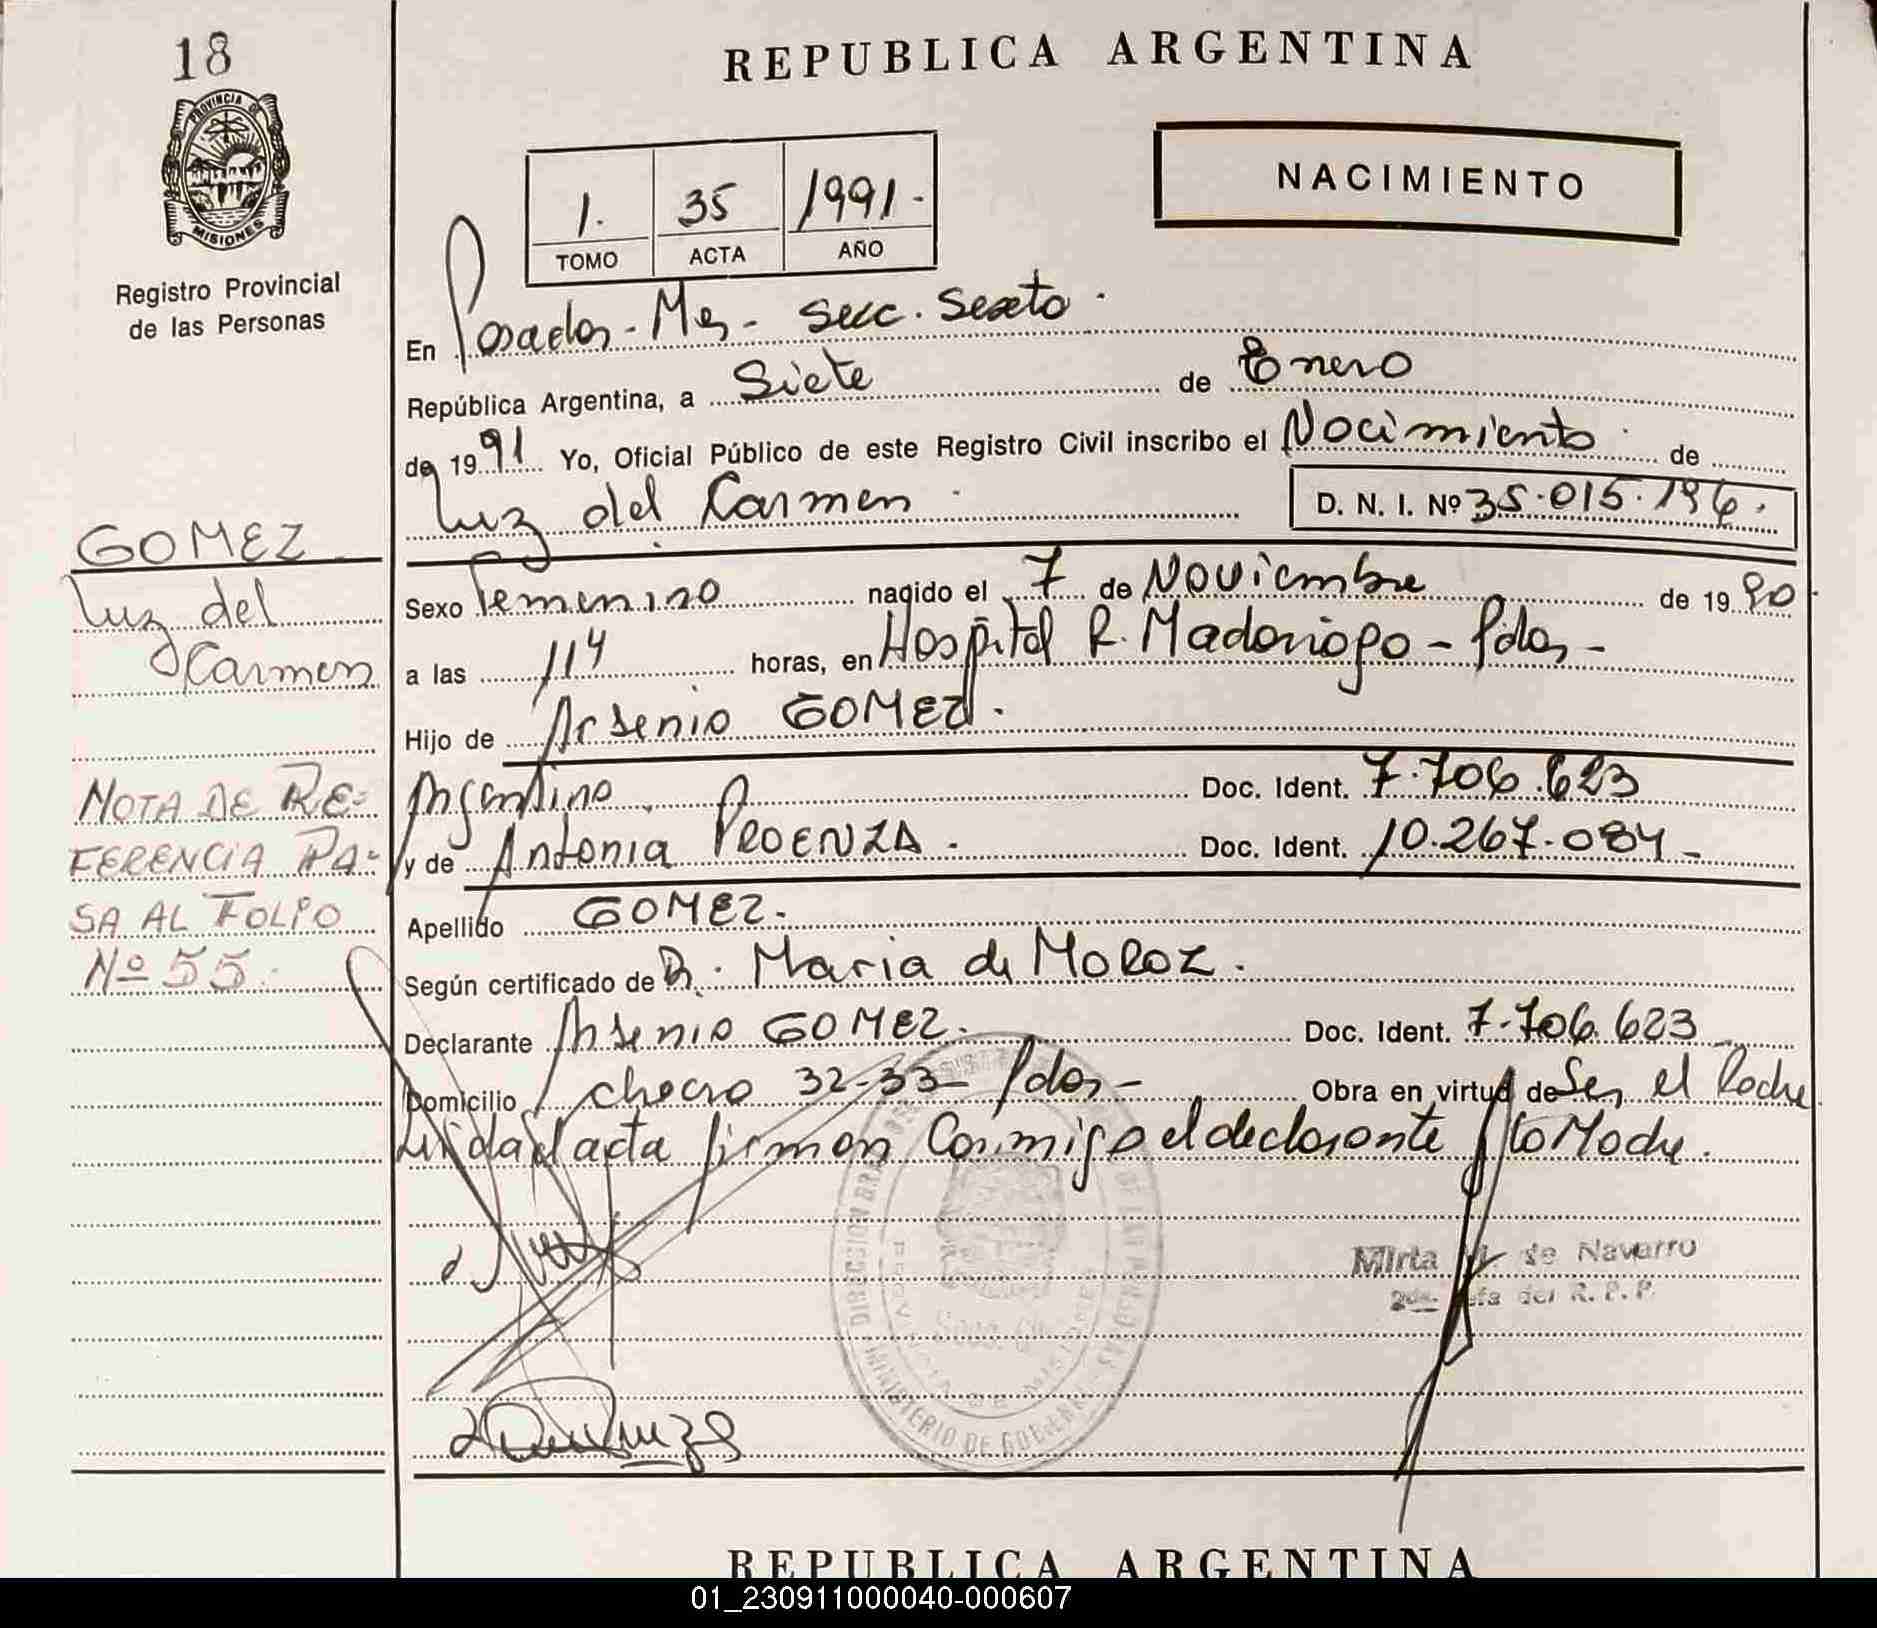 18
REPUBLICA ARGENTINA
PROVINCIA DE
MISIONES
Registro Provincial
de las Personas
1. 35 1991.
TOMO ACTA AÑO
NACIMIENTO
En Posadas - Mes - Secc. Sexto.
República Argentina, a Siete de Enero
de 1991 Yo, Oficial Público de este Registro Civil inscribo el Nacimiento de
Luz del Carmen. D. N. I. Nº 35.015.196.
GOMEZ
Luz del
Carmen
Sexo Femenino nacido el 7 de Noviembre de 1990
a las 114 horas, en Hospital R. Madariaga - Pdas -
Hijo de Arsenio GOMEZ.
Argentino. Doc. Ident. 7.706.623
y de Antonia PROENZA. Doc. Ident. 10.267.084 -
NOTA DE RE=
FERENCIA PA=
SA AL FOLIO
Nº 55.
Apellido GOMEZ.
Según certificado de Dr. Maria de MOROZ.
Declarante Arsenio GOMEZ. Doc. Ident. 7.706.623
Domicilio chacra 32-33 - Pdas - Obra en virtud de Ser el Padre
Leida el acta firman Conmigo el declarante y la Madre.
Mirta de Navarro
del R. P. P.
MINISTERIO DE GOBIERNO
REPUBLICA ARGENTINA
01_230911000040-000607